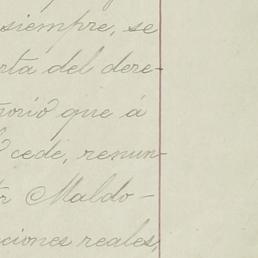 siempre, se
rta del dere-
torio que á
cede, renun-
r Maldo-
ciones reales,